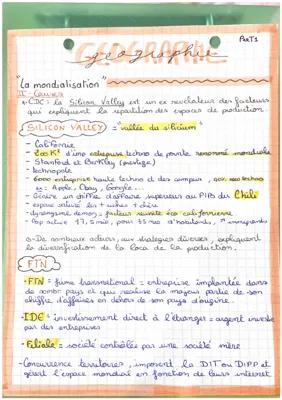 PART 1
GEOGRAPHIE
géographie
"La mondialisation"
II - Causes
A. CDC : la Silicon Valley est un ex révélateur des facteurs
qui expliquent la répartition des espaces de production.
SILICON VALLEY = "vallée du silicium"
- Californie
- 200 km² d'une entreprise techno de pointe renommé mondiale
- Stanford et Berkley (prestige)
- technopole
- 6000 entreprise haute techno et des campus, techno
ex : Apple, Ebay, Google...
- Génère un chiffre d'affaire supérieur au PIB du Chili
- espace entier les + riches + chère
- dynamisme démog, facteur réussite éco californienne
- Pop active 17,5 mio, pour 38 mio d'habitants, immigrants
B - De nombreux acteurs, aux stratégies diverses, expliquent
la diversification de la loca de la production.
FTN
- FTN = firme transnational = entreprise implantée dans
de nombr pays et qui réalise la majeure partie de son
chiffre d'affaires en dehors de son pays d'origine.
- IDE = investissement direct à l'étranger = argent investie
par des entreprises
- Filiale = société contrôlée par une société mère
- Concurrence territoires, imposent la DIT ou DIPP et
gèrent l'espace mondial en fonction de leurs intérêt